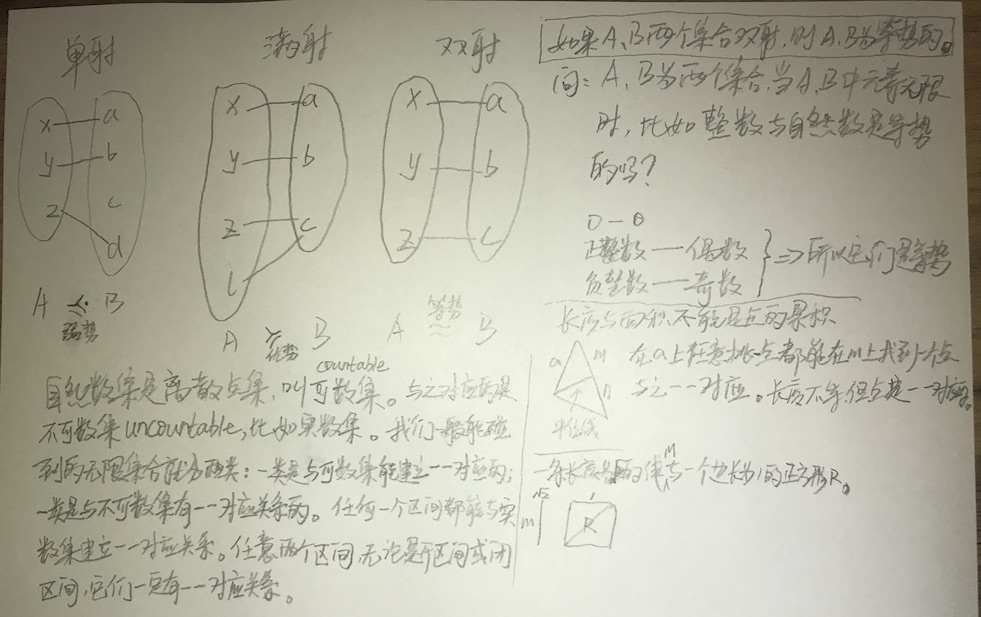 单射
x a
y b
z c
d
A ≼ B
弱势
满射
x a
y b
z c
l
A ≽ B
优势
双射
x a
y b
z c
A ≈ B
等势
如果A、B两个集合双射,则A、B为等势的。
问:A、B为两个集合,当A、B中元素无限
时,比如整数与自然数是等势
的吗?
0 — 0
正整数 — 偶数
负整数 — 奇数
=> 所以它们是等势
countable
自然数集是离散点集,叫可数集。与之对应的是
不可数集uncountable,比如实数集。我们一般能碰
到的无限集合就分两类:一类是与可数集能建立一一对应的;
一类是与不可数集有一一对应关系的。任何一个区间都能与实
数集建立一一对应关系。任意两个区间,无论是开区间或闭
区间,它们一定有一一对应关系。
长度与面积不能是点的累积
a m n
在a上任意挑一点都能在m上找到一个点
与之一一对应。长度不等,但点是一一对应。
中位线
一条长度为 的线 m与一个边长为1的正方形R。
m
1
R